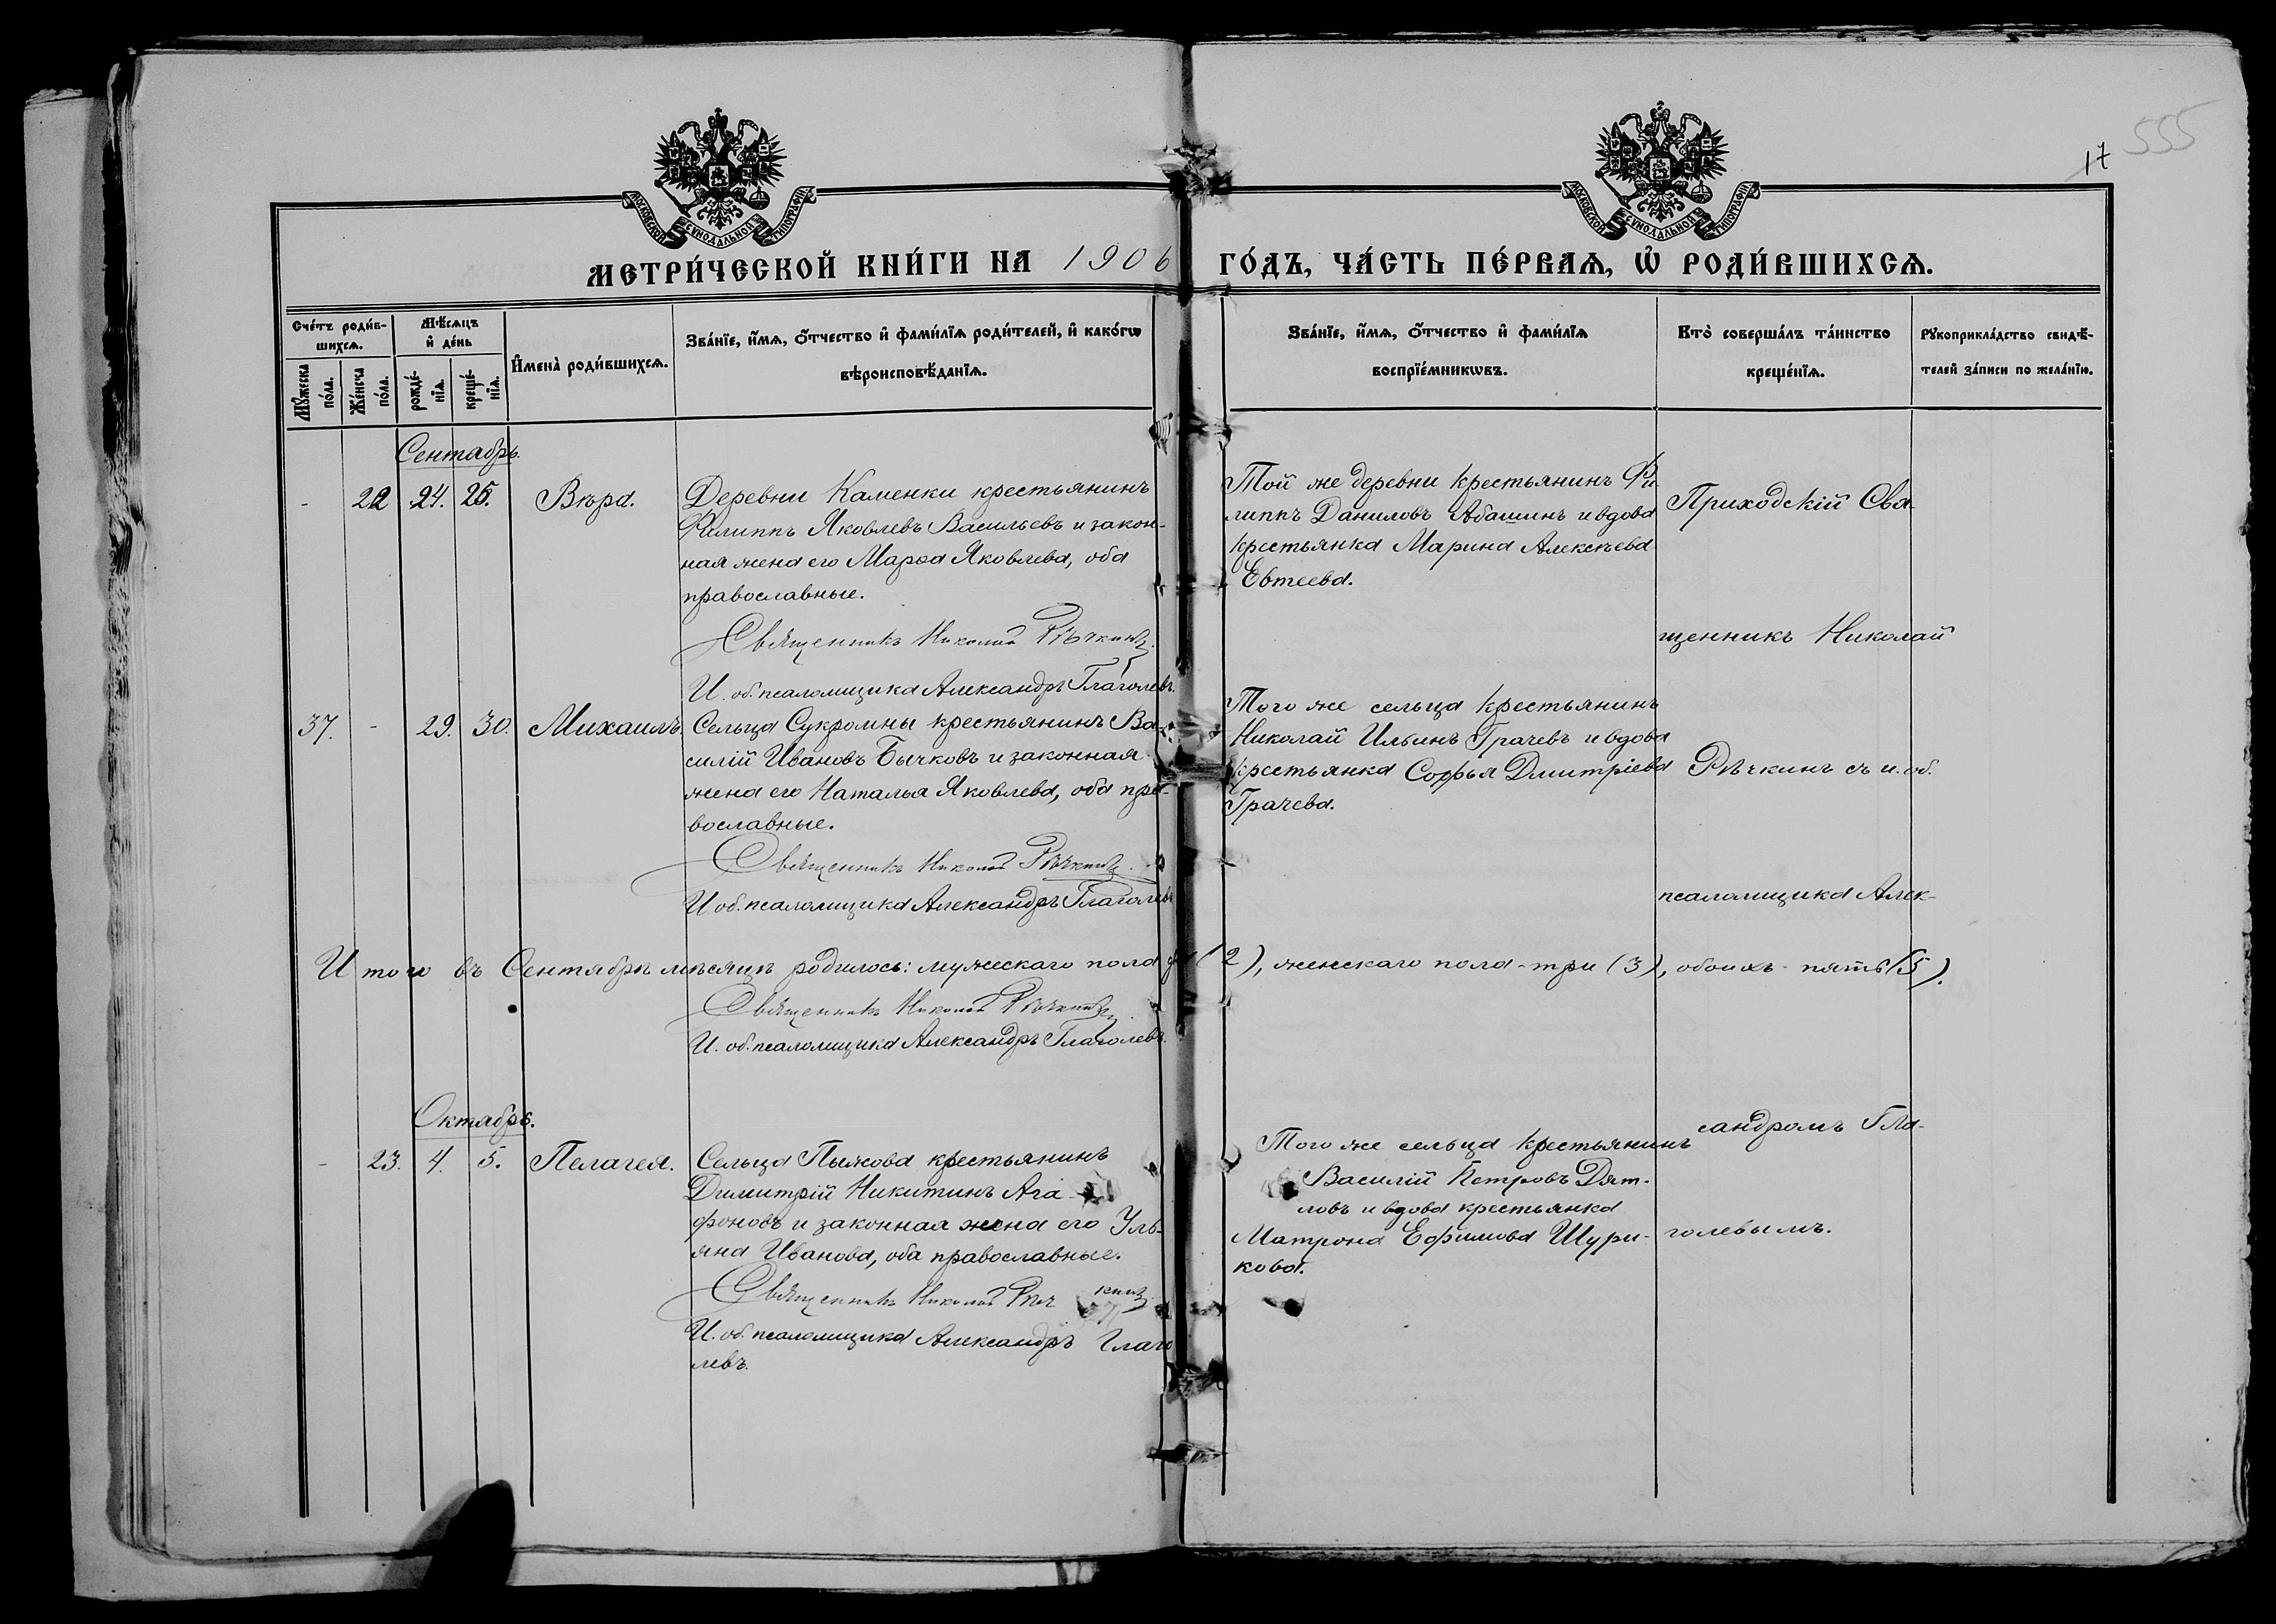 555
17
МОСКОВСКОЙ СУНОДАЛЬНОЙ ТИПОГРАФІИ
МОСКОВСКОЙ СУНОДАЛЬНОЙ ТИПОГРАФІИ
МЕТРИ́ЧЕСКОЙ КНИ́ГИ НА 1906 ГО́ДЪ, ЧА́СТЬ ПЕ́РВАѦ, Ѡ҆ РОДИ́ВШИХСѦ.
Сче́тъ роди́в-
шихсѧ.
Мꙋ́жеска по́ла.
Же́нска по́ла.
Мѣ́сѧцъ и҆ де́нь
рожде́-нїѧ.
креще́-нїѧ.
И҆мена̀ роди́вшихсѧ.
Зва́нїе, и҆́мѧ, ѻ҆́тчество и҆ фами́лїѧ роди́телей, и҆ како́гѡ
вѣроисповѣ́данїѧ.
Зва́нїе, и҆́мѧ, ѻ҆́тчество и҆ фами́лїѧ
воспрїе́мникѡвъ.
Кто̀ соверша́лъ та́инство
креще́нїѧ.
Рꙋкоприкла́дство свидѣ́-
телей за́писи по жела́нїю.
Сентябрь.
- 22 24. 25. Вѣра.
Деревни Каменки крестьянинъ
Филиппъ Яковлевъ Васильевъ и закон-
ная жена его Марѳа Яковлева, оба
православные.
Священникъ Николай Рѣчкинъ.
И. об. псаломщика Александръ Глаголевъ.
Той же деревни крестьянинъ Фи
липпъ Даниловъ Абашинъ и вдова
крестьянка Марина Алексѣева
Евтеева.
Приходскій Свя-
щенникъ Николай
37. - 29. 30. Михаилъ.
Сельца Сукромны крестьянинъ Ва-
силій Ивановъ Бычковъ и законная
жена его Наталья Яковлева, оба пра-
вославные.
Священникъ Николай Рѣчкинъ.
И об. псаломщика Александръ Глаголевъ
Того же сельца крестьянинъ
Николай Ильинъ Грачевъ и вдова
крестьянка Софья Дмитріева
Грачева.
Рѣчкинъ съ и. об.
псаломщика Алек-
Итого въ Сентябрѣ мѣсяцѣ родилось: мужескаго пола (2), женскаго пола - три (3), обоихъ - пять (5).
Священникъ Николай Рѣчкинъ
И. об. псаломщика Александръ Глаголевъ.
Октябрь.
- 23. 4. 5. Пелагея.
Сельца Пыжова крестьянинъ
Димитрій Никитинъ Ага-
фоновъ и законная жена его Уль-
яна Иванова, оба православные.
Священникъ Николай Рѣчкинъ
И. об. псаломщика Александръ Глаго
левъ.
Того же сельца крестьянинъ
Василій Петровъ Дят-
ловъ и вдова крестьянка
Матрона Ефимова Шури-
кова.
сандромъ Гла-
голевымъ.